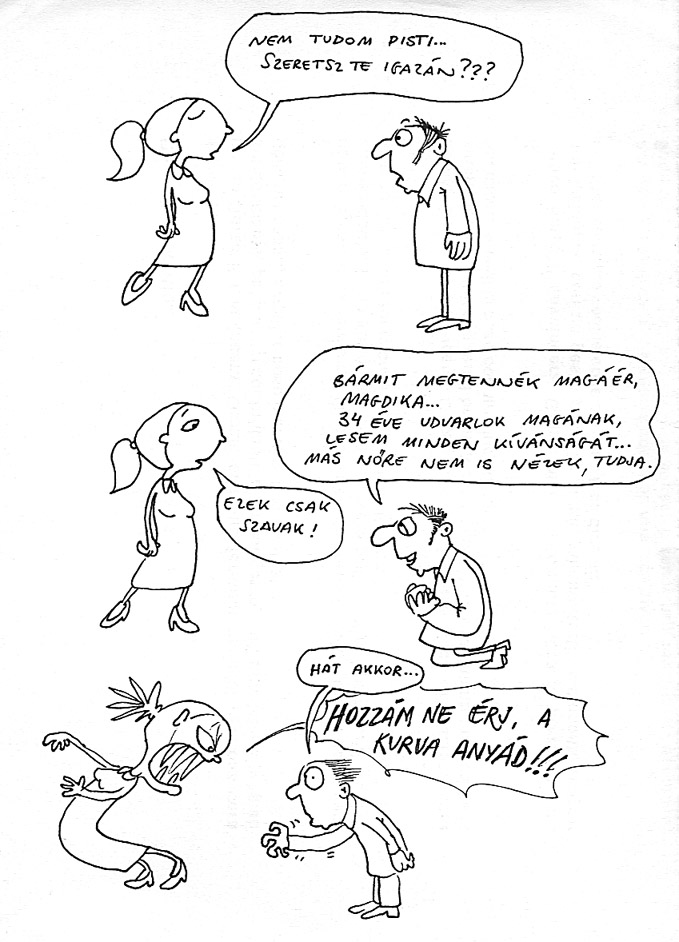 NEM TUDOM PISTI...
SZERETSZ TE IGAZÁN???
BÁRMIT MEGTENNÉK MAGÁÉR,
MAGDIKA...
34 ÉVE UDVARLOK MAGÁNAK,
LESEM MINDEN KÍVÁNSÁGÁT...
MÁS NŐRE NEM IS NÉZEK, TUDJA.
EZEK CSAK
SZAVAK!
HÁT AKKOR...
HOZZÁM NE ÉRJ, A
KURVA ANYÁD!!!